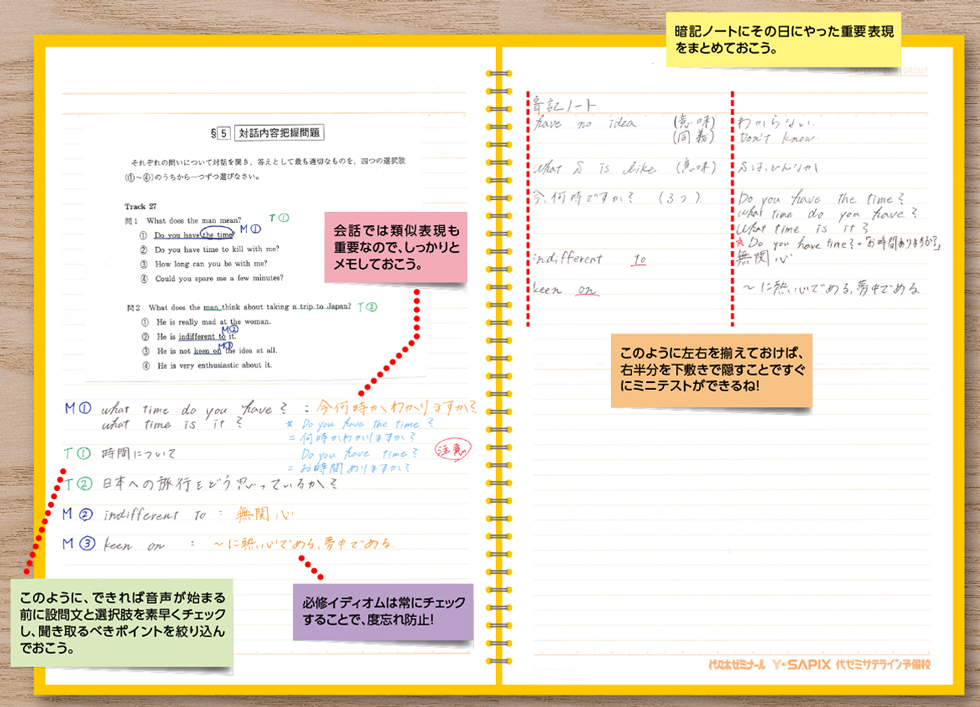 暗記ノートにその日にやった重要表現
をまとめておこう。
GROUP
§5 対話内容把握問題
それぞれの問いについて対話を聞き、答えとして最も適切なものを、四つの選択肢
(①~④)のうちから一つずつ選びなさい。
Track 27
問1 What does the man mean? T①
① Do you have the time? M①
② Do you have time to kill with me?
③ How long can you be with me?
④ Could you spare me a few minutes?
問2 What does the man think about taking a trip to Japan? T②
① He is really mad at the woman.
M②
② He is indifferent to it.
M③
③ He is not keen on the idea at all.
④ He is very enthusiastic about it.
会話では類似表現も
重要なので、しっかりと
メモしておこう。
M① what time do you have? : 今何時かわかりますか?
what time is it? * Do you have the time?
= 何時かわかりますか?
Do you have time? 注意
= お時間ありますか?
T① 時間について
T② 日本への旅行をどう思っているか?
M② indifferent to : 無関心
M③ keen on : ~に熱心である,夢中である.
このように、できれば音声が始まる
前に設問文と選択肢を素早くチェック
し、聞き取るべきポイントを絞り込ん
でおこう。
必修イディオムは常にチェック
することで、度忘れ防止!
音記ノート
have no idea. (意味) わからない.
(同義) Don't know.
what S is like. (意味) Sは、どんなか
今、何時ですか? (3つ) Do you have the time?
what time do you have?
What time is it?
☆ Do you have time?=「お時間ありますか?」
indifferent to 無関心
keen on ~に熱心である,夢中である.
このように左右を揃えておけば、
右半分を下敷きで隠すことですぐ
にミニテストができるね!
代々木ゼミナール Y-SAPIX 代ゼミサテライン予備校